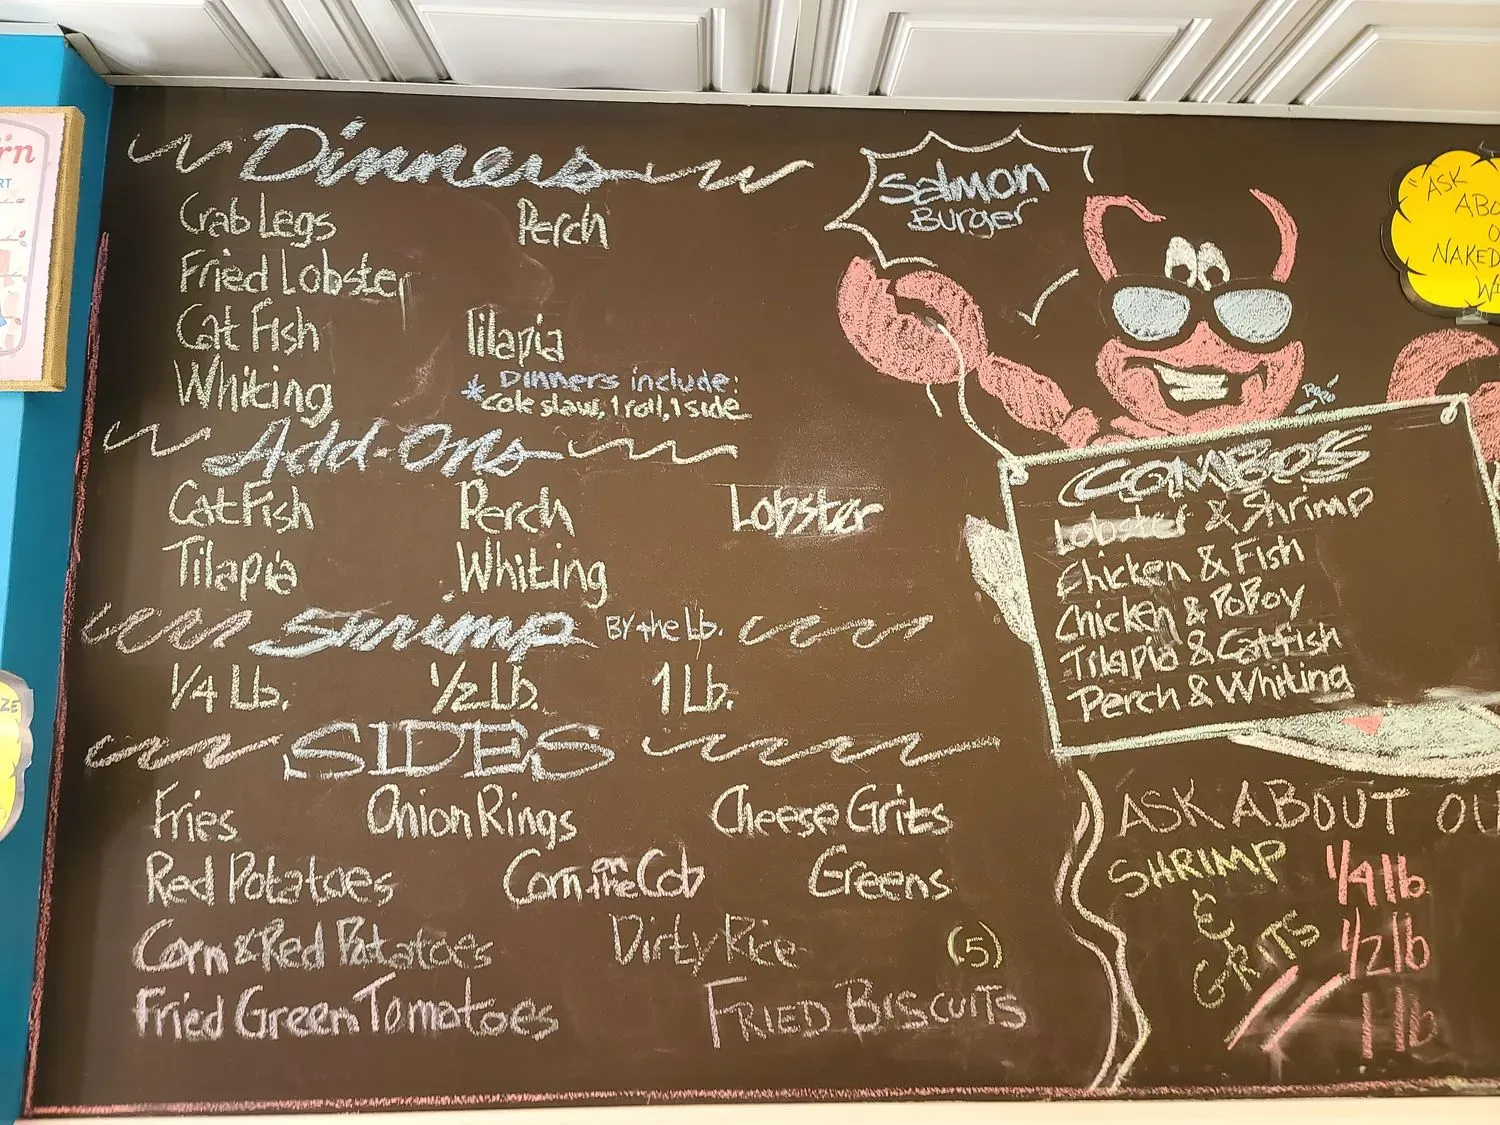 Dinners
Crab Legs Perch
Fried Lobster
Cat Fish Tilapia
Whiting
* Dinners include:
Cole slaw, 1 roll, 1 side
Add-Ons
CatFish Perch Lobster
Tilapia Whiting
Shrimp By the Lb.
1/4 Lb. 1/2 Lb. 1 Lb.
SIDES
Fries Onion Rings Cheese Grits
Red Potatoes Corn on the Cob Greens
Corn & Red Potatoes Dirty Rice (5)
Fried Green Tomatoes FRIED BISCUITS
Salmon
Burger
COMBO'S
Lobster & Shrimp
Chicken & Fish
Chicken & PoBoy
Tilapia & Catfish
Perch & Whiting
ASK ABOUT OU
SHRIMP
&
GRITS
1/4 lb
1/2 lb
1 lb
"ASK
ABO
O
NAKED
WI
rn
RT
ZE